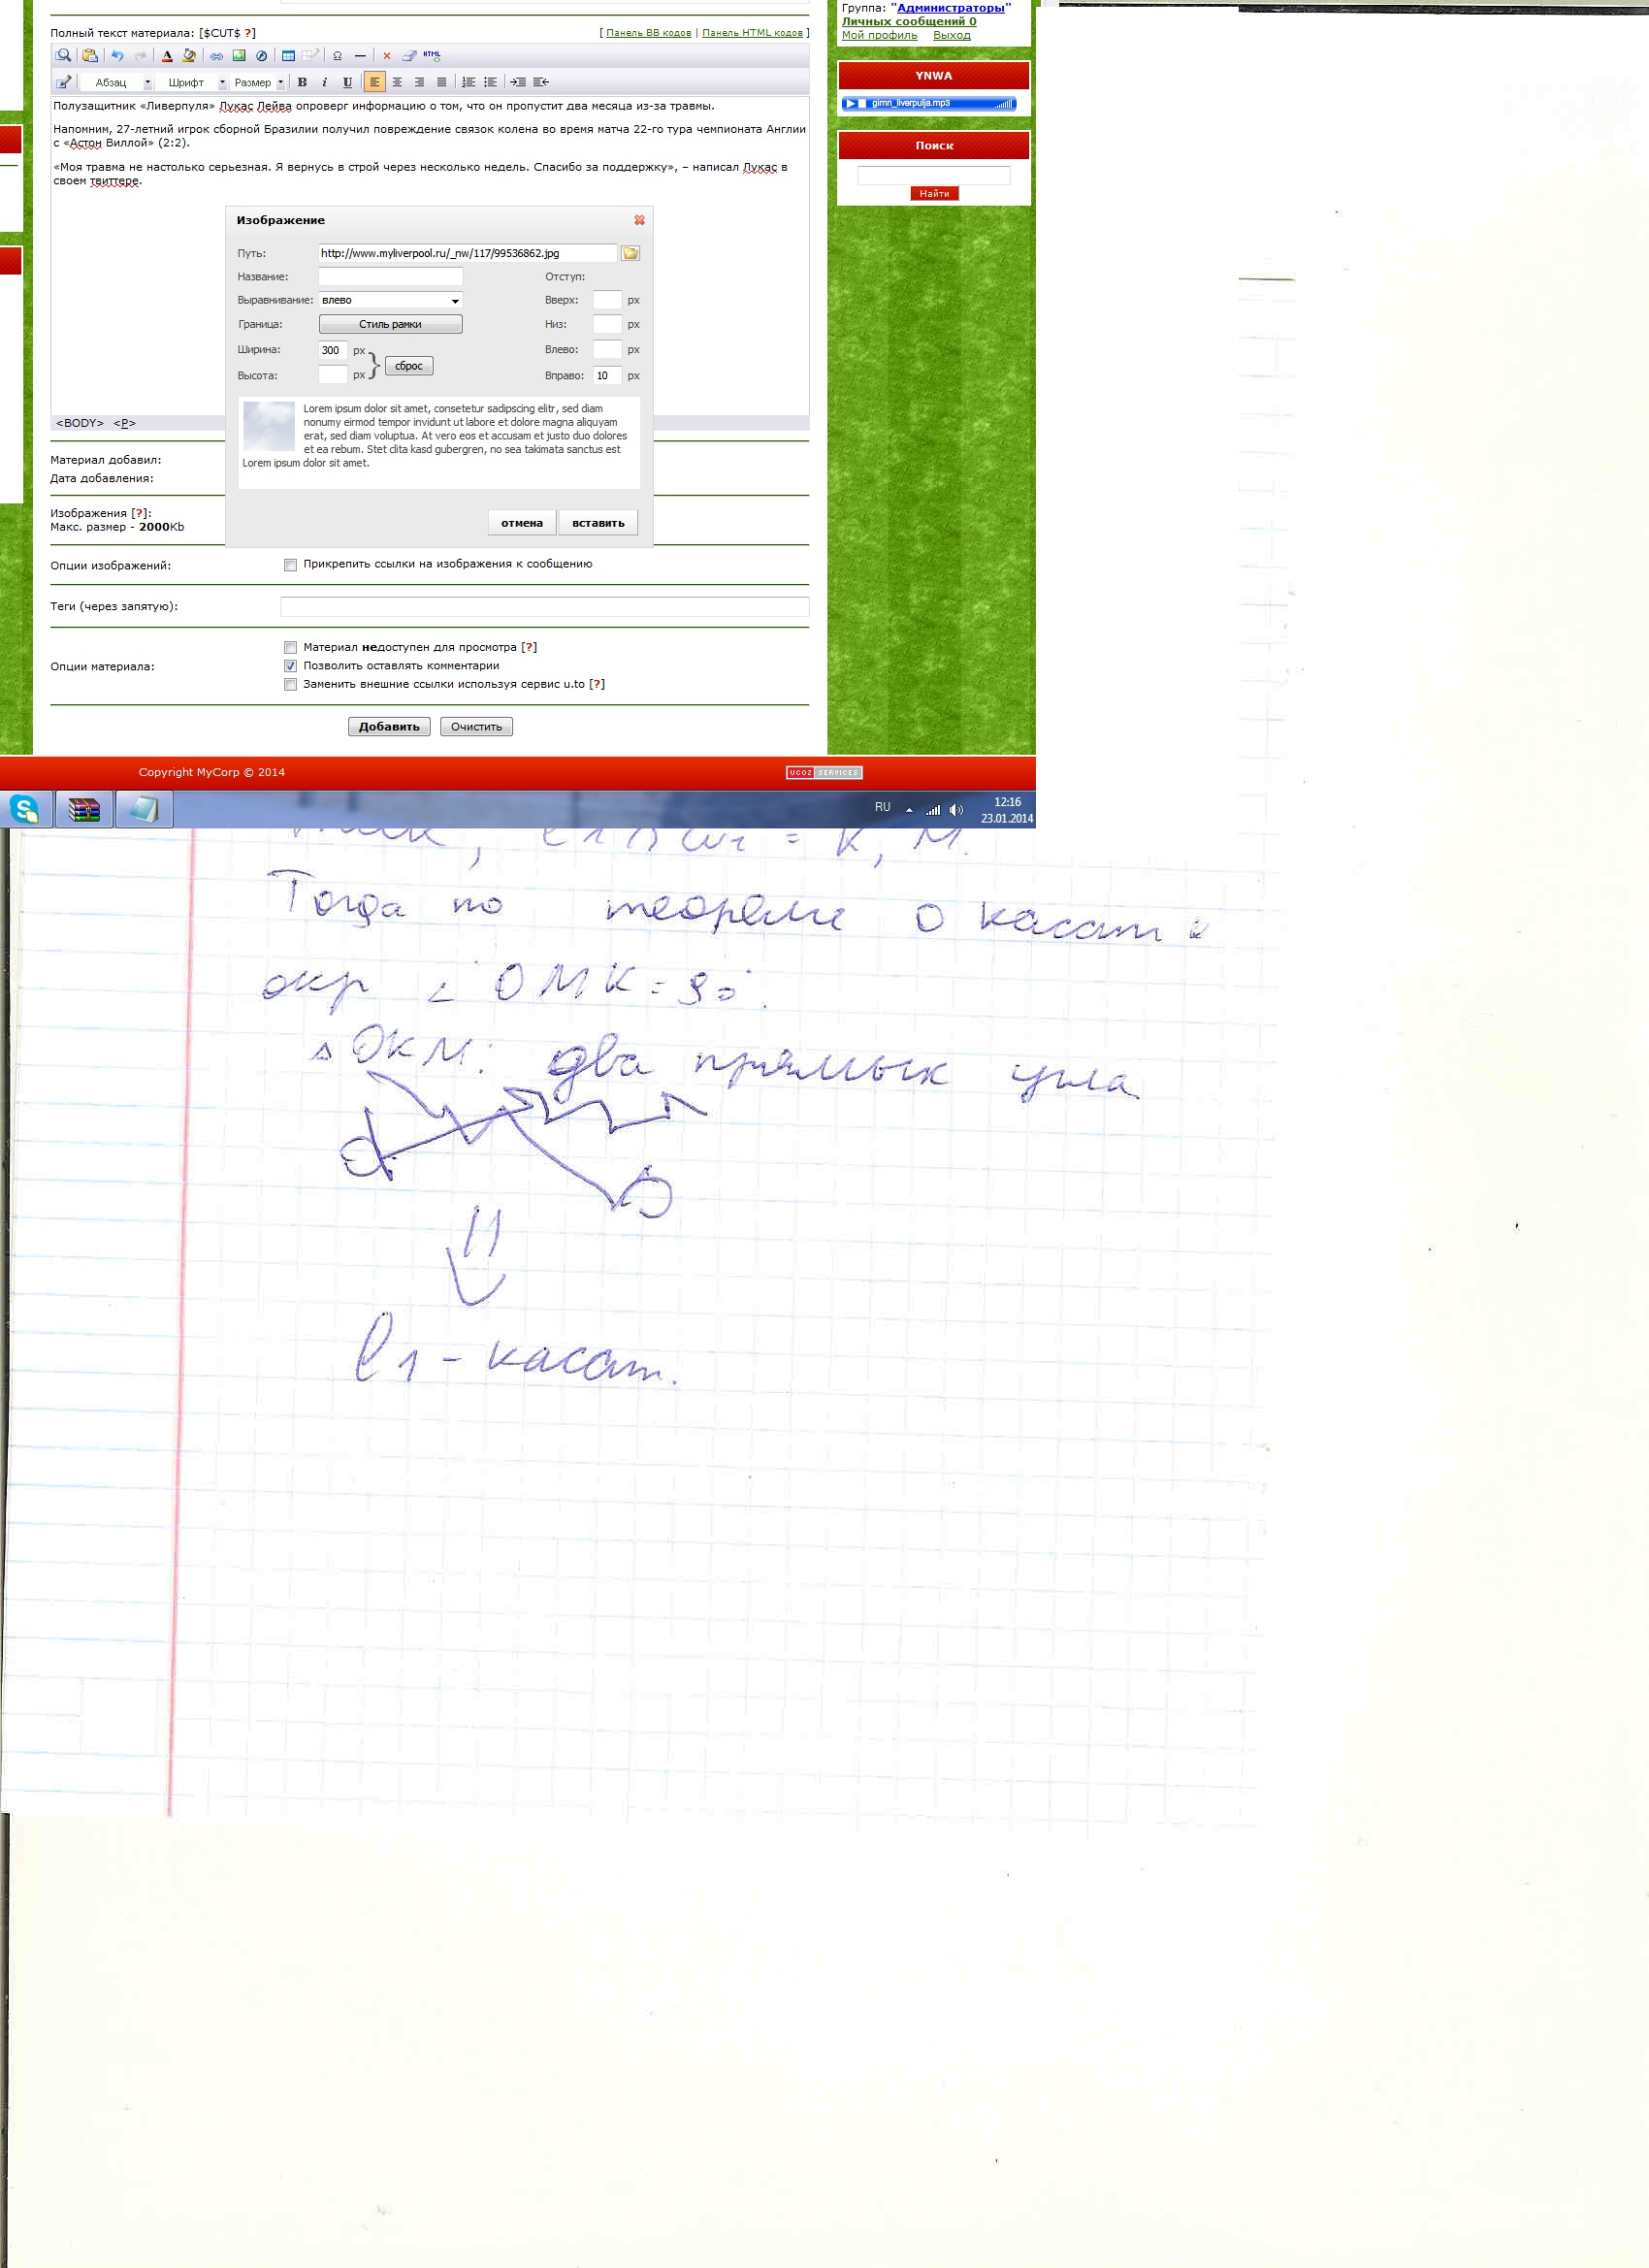 Полный текст материала: [$CUT$ ?]
[ Панель BB кодов | Панель HTML кодов ]
HTML
Абзац Шрифт Размер B i U
Полузащитник «Ливерпуля» Лукас Лейва опроверг информацию о том, что он пропустит два месяца из-за травмы.
Напомним, 27-летний игрок сборной Бразилии получил повреждение связок колена во время матча 22-го тура чемпионата Англии
с «Астон Виллой» (2:2).
«Моя травма не настолько серьезная. Я вернусь в строй через несколько недель. Спасибо за поддержку», – написал Лукас в
своем твиттере.
Изображение
Путь: http://www.myliverpool.ru/_nw/117/99536862.jpg
Название: Отступ:
Выравнивание: влево Вверх: px
Граница: Стиль рамки Низ: px
Ширина: 300 px Влево: px
сброс
Высота: px Вправо: 10 px
Lorem ipsum dolor sit amet, consetetur sadipscing elitr, sed diam
nonumy eirmod tempor invidunt ut labore et dolore magna aliquyam
erat, sed diam voluptua. At vero eos et accusam et justo duo dolores
et ea rebum. Stet clita kasd gubergren, no sea takimata sanctus est
Lorem ipsum dolor sit amet.
отмена вставить
<BODY> <P>
Материал добавил:
Дата добавления:
Изображения [?]:
Макс. размер - 2000Kb
Опции изображений: Прикрепить ссылки на изображения к сообщению
Теги (через запятую):
Опции материала:
Материал недоступен для просмотра [?]
Позволить оставлять комментарии
Заменить внешние ссылки используя сервис u.to [?]
Добавить Очистить
Группа: "Администраторы"
Личных сообщений 0
Мой профиль Выход
YNWA
gimn_liverpulja.mp3
Поиск
Найти
Copyright MyCorp © 2014
UCOZ SERVICES
RU 12:16
23.01.2014
= К, М.
Тогда по теореме о касат и
окр ∠ OMK = 90°.
△ OKM: два прямых угла
l1 - касат.